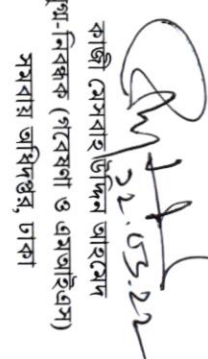 ২২.০৫.২২
কাজী মেসবাহ উদ্দিন আহমেদ
যুগ্ম-নিবন্ধক (গবেষণা ও এমআইএস)
সমবায় অধিদপ্তর, ঢাকা